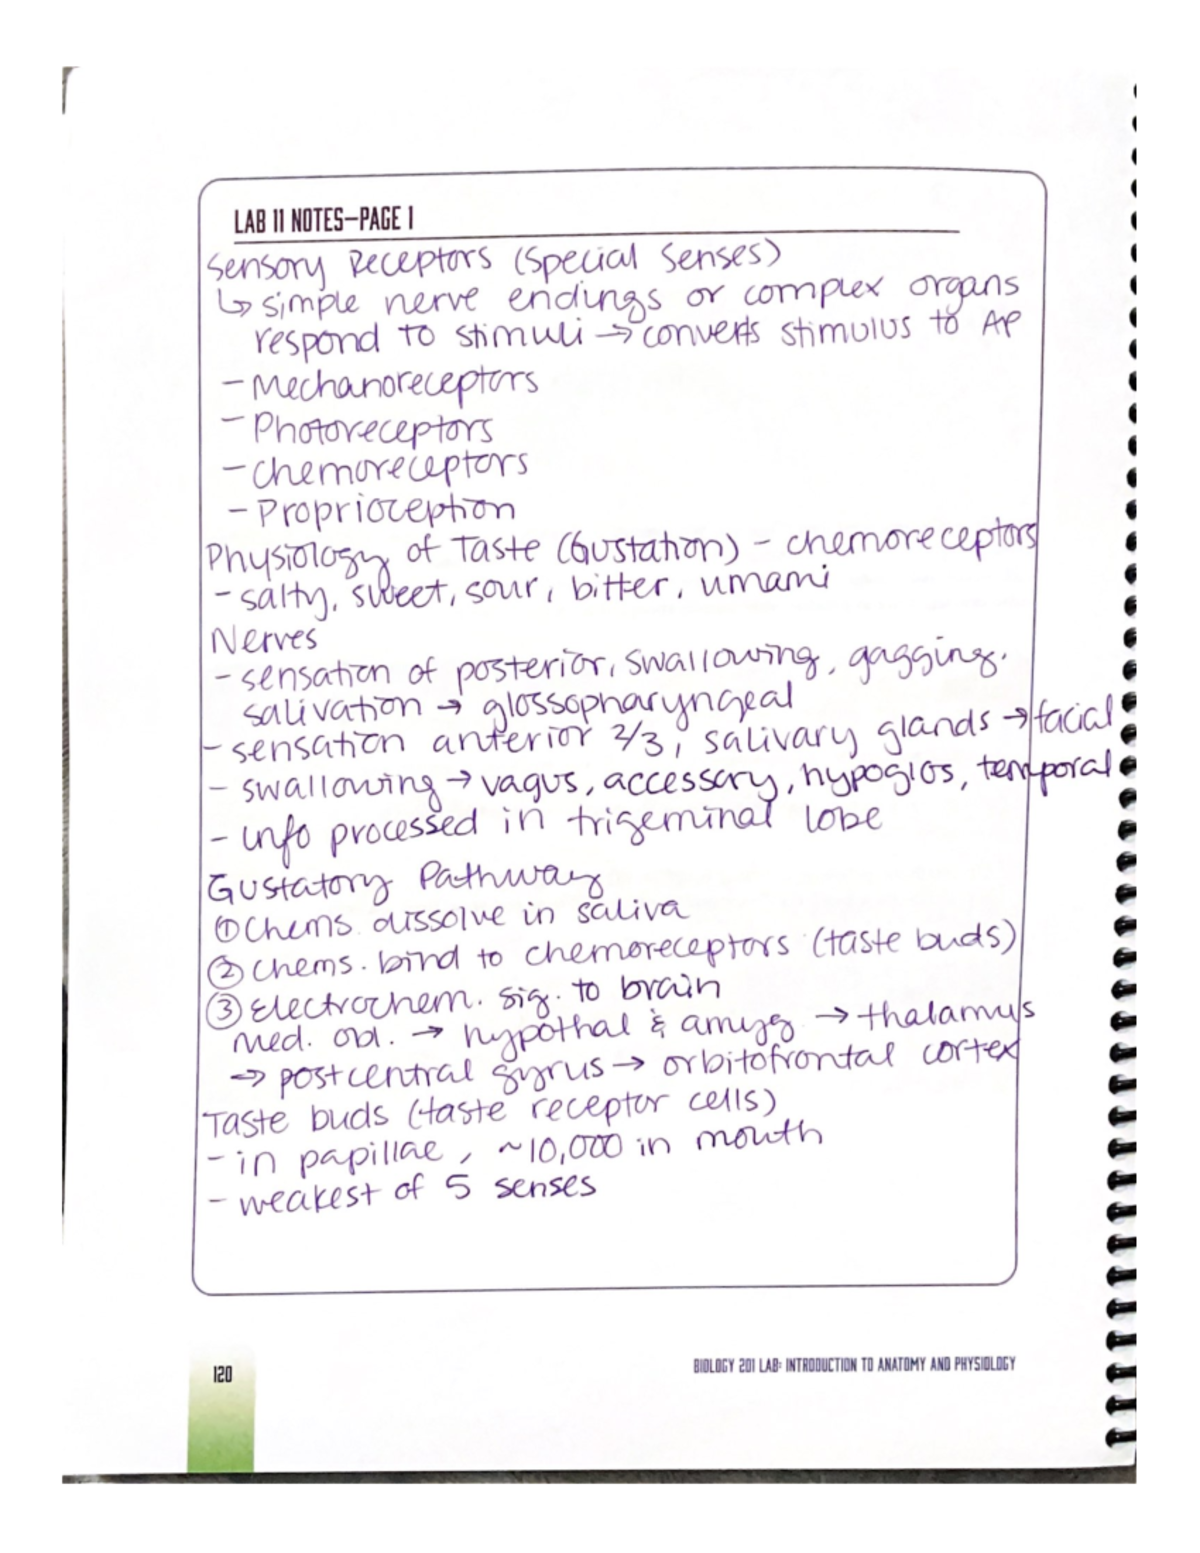 LAB 11 NOTES–PAGE 1
Sensory Receptors (Special Senses)
↳ simple nerve endings or complex organs
respond to stimuli → converts stimulus to AP
- Mechanoreceptors
- Photoreceptors
- chemoreceptors
- Proprioception
Physiology of Taste (Gustation) - chemoreceptors
- salty, sweet, sour, bitter, umami
Nerves
- sensation of posterior, swallowing, gagging,
salivation → glossopharyngeal
- sensation anterior 2/3, salivary glands → facial
- swallowing → vagus, accessory, hypoglos, temporal
- info processed in trigeminal lobe
Gustatory Pathway
① Chems. dissolve in saliva
② chems. bind to chemoreceptors (taste buds)
③ Electrochem. sig. to brain
med. obl. → hypothal & amyg → thalamus
→ postcentral gyrus → orbitofrontal cortex
Taste buds (taste receptor cells)
- in papillae, ~10,000 in mouth
- weakest of 5 senses
120
BIOLOGY 201 LAB: INTRODUCTION TO ANATOMY AND PHYSIOLOGY